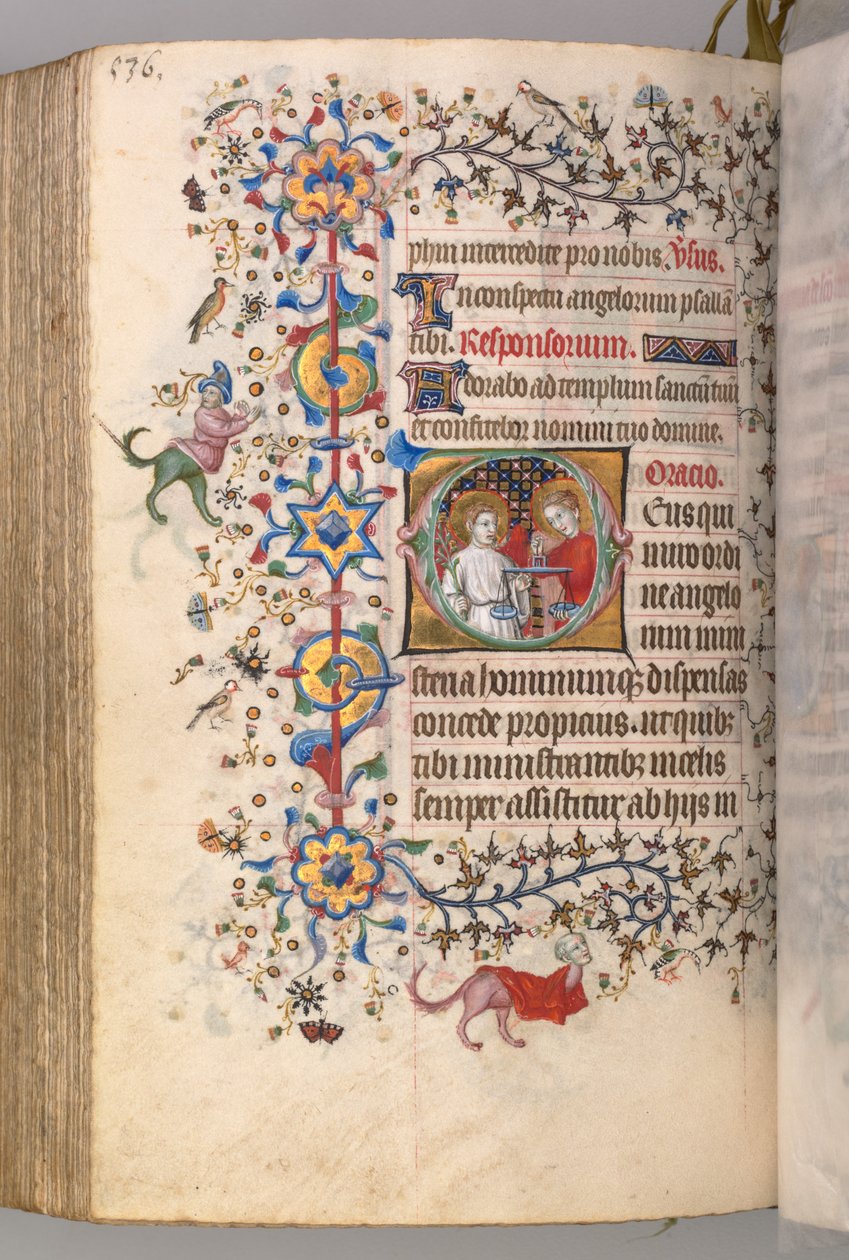 536,
phin intercedite pro nobis. V̄sus.
In conspectu angelorum psallā
tibi. Responsorium.
Adorabo ad templum sanctū tuū
et confitebor nomini tuo domine.
Oracio.
Deus qui
miro ordi
ne angelo
rum mini
steria hominumqꝫ dispensas
concede propicius. ut quibꝫ
tibi ministrantibꝫ in celis
semper assistitur ab hijs in